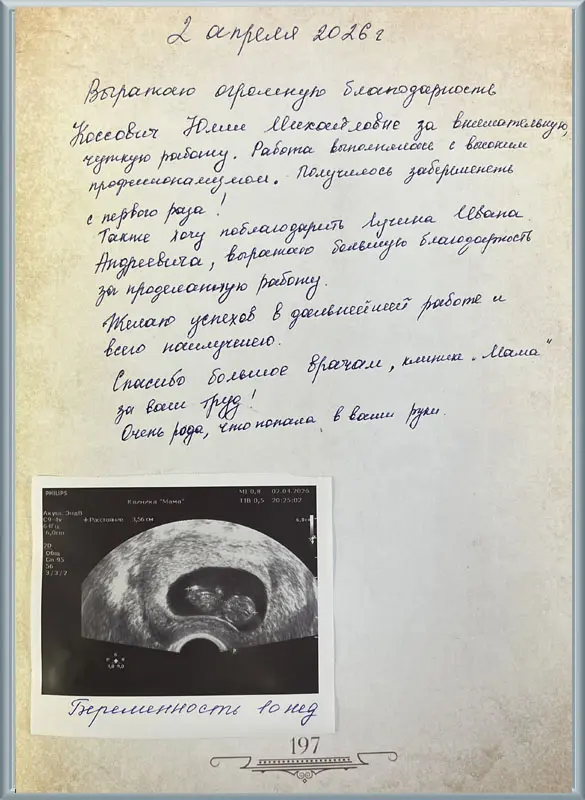 2 апреля 2026 г
Выражаю огромную благодарность
Коссович Юлии Михайловне за внимательную,
чуткую работу. Работа выполнялась с высоким
профессионализмом. Получилось забеременеть
с первого раза!
Также хочу поблагодарить Лучина Ивана
Андреевича, выражаю большую благодарность
за проделанную работу.
Желаю успехов в дальнейшей работе и
всего наилучшего.
Спасибо большое врачам, клинике „Мама"
за ваш труд!
Очень рада, что попала в ваши руки.
PHILIPS
Клиника "Мама"
MI 0,8 02.04.2026
TIB 0,5 20:25:02
Акуш. ЭндВ
C9-4v
64Гц
6,0cm
+ Расстояние 3,56 см
2D
Общ
Сп-95
56
3/3/2
P
Беременность 10 нед
197